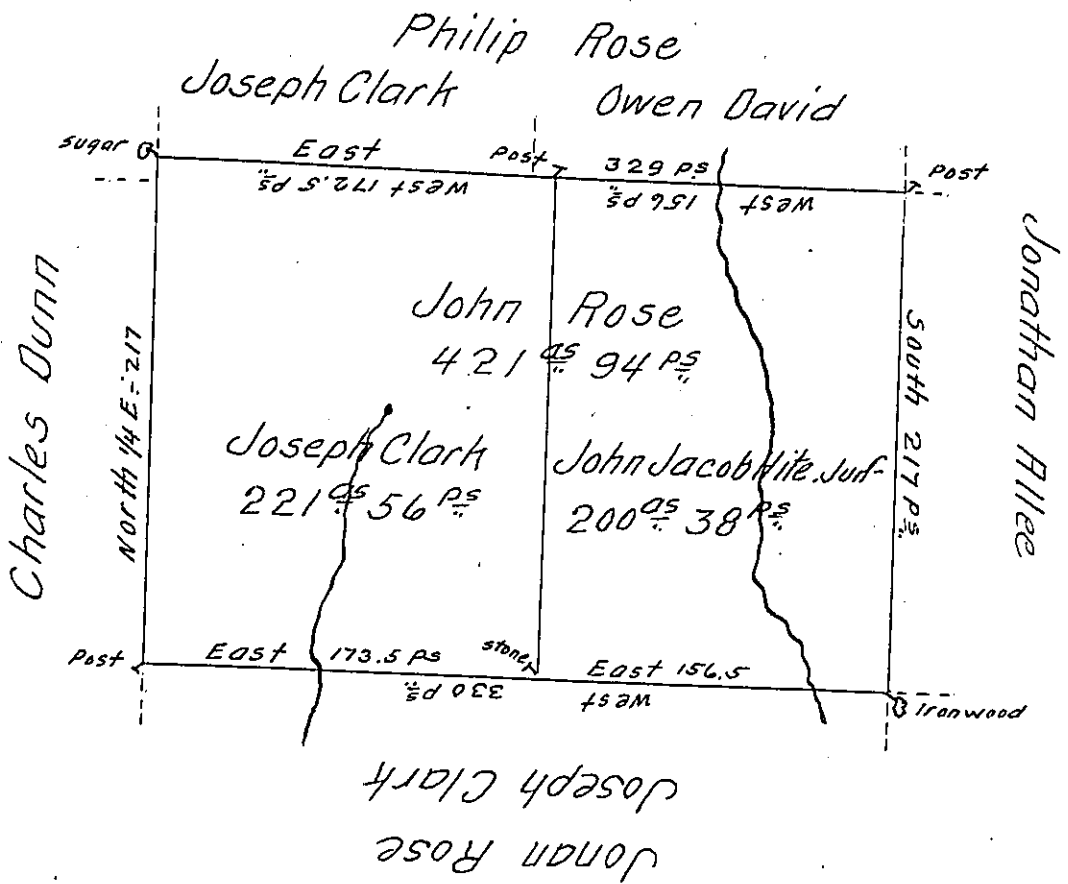 Philip Rose
Joseph Clark Owen David
sugar East Post 329 ps Post
West 172.5 ps West 156 ps
Charles Dunn
North 1/4 E - 217
John Rose
421 as 94 ps
Joseph Clark
221 as 56 ps
John Jacob Hite. Jur
200 as 38 ps
South 217 ps
Jonathan Allee
Post East 173.5 ps stone East 156.5
West 330 ps
Ironwood
Joseph Clark
Jonan Rose